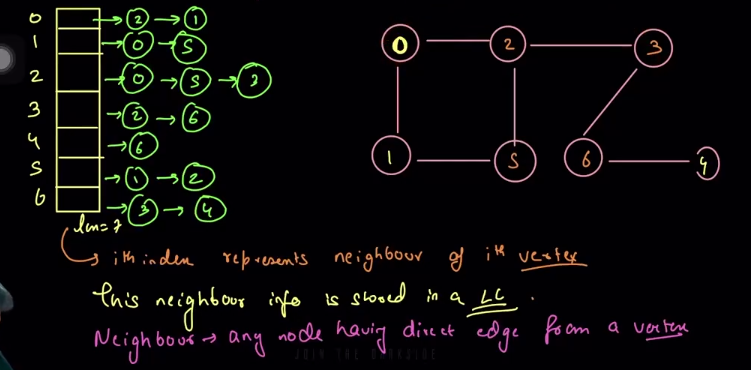 0 → 2 → 1
1 → 0 → 5
2 → 0 → 5 → 3
3 → 2 → 6
4 → 6
5 → 1 → 2
6 → 3 → 4
len=7
0 2 3
1 5 6 4
→ ith index represents neighbour of ith vertex
This neighbour info is stored in a LL.
Neighbour → any node having direct edge from a vertex
JOIN THE DARKSIDE